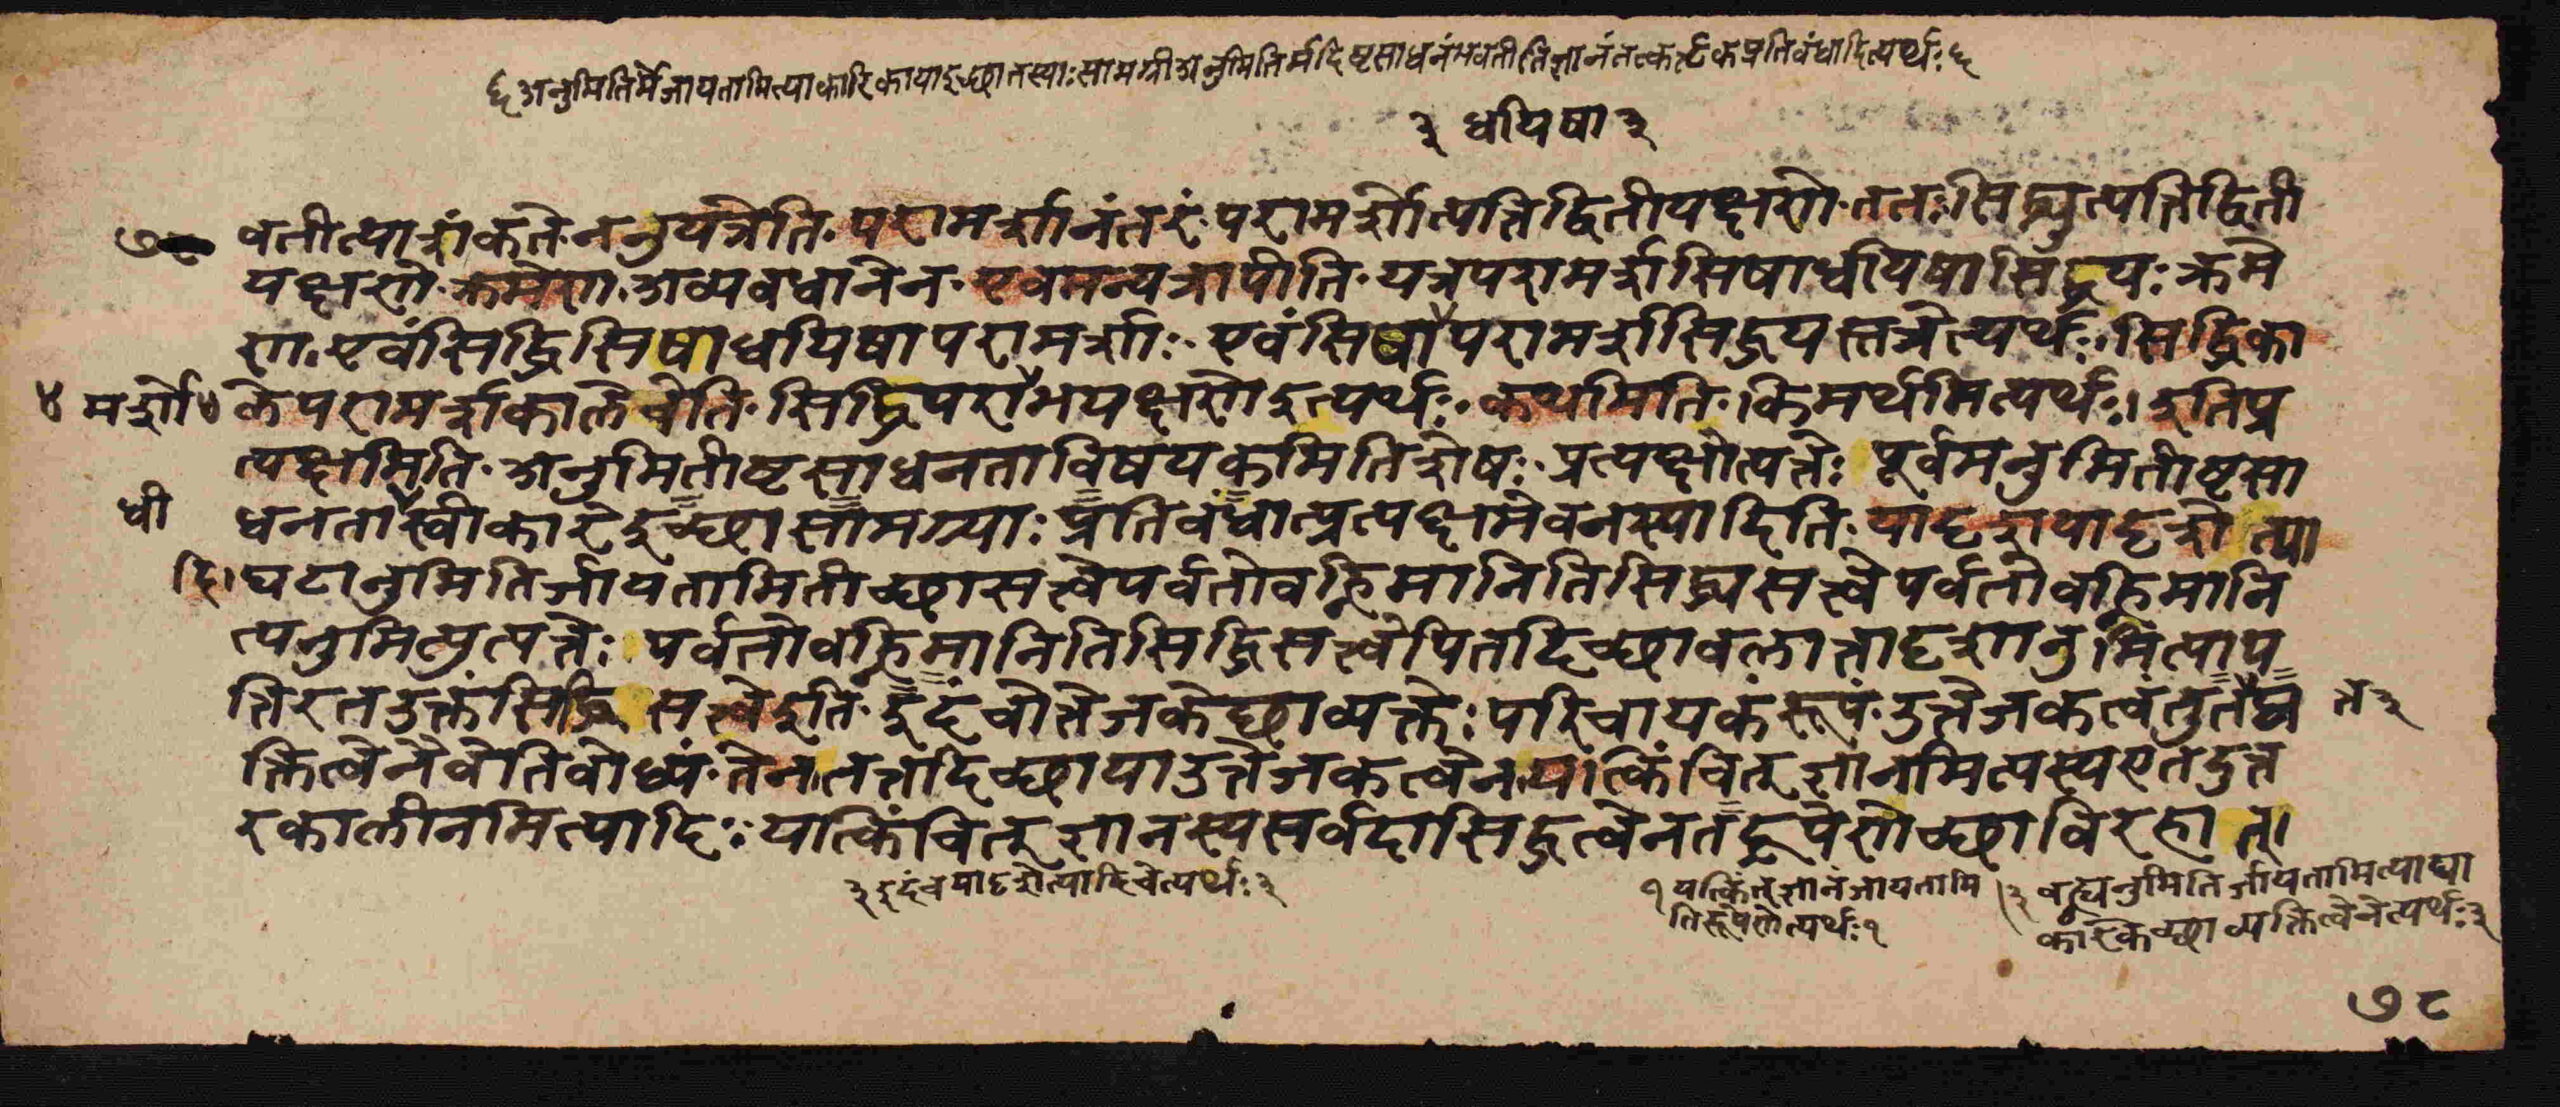 ६ अनुमितिर्मे जायतामित्याकारिका या इच्छा तस्याः सामग्री अनुमितिर्मदिष्टसाधनं भवतीति ज्ञानं तत्कर्तृकप्रतिबंधादित्यर्थः ६
३ धयिषा ३
वतीत्याशंकते. ननु यत्रेति. परामर्शानंतरं. परामर्शोत्पत्तिद्वितीयक्षणे. ततः सिद्ध्युत्पत्तिद्विती
यक्षणे. क्रमेण. अव्यवधानेन. एवमन्यत्रापीति. यत्र परामर्शसिषाधयिषासिद्धयः क्रमे
ण. एवं सिद्धिसिषाधयिषापरामर्शाः. एवं सिषापरामर्शसिद्धयस्तत्रेत्यर्थः. सिद्धिका
४ मर्शो ४ ले परामर्शकाले वेति. सिद्धिपराभयक्षणे इत्यर्थः. कथमिति. किमर्थमित्यर्थः. इति प्र
त्यक्षामिति. अनुमितीष्टसाधनताविषयकमिति शेषः. प्रत्यक्षोत्पत्तेः पूर्वमनुमितीष्टसा
धी धनतास्वीकारे इच्छासामग्र्याः प्रतिबंधात्प्रत्यक्षमेव न स्यादिति. यादृशयादृशेत्या
दि। घटानुमितिर्जायतामितीच्छासत्त्वे पर्वतो वह्निमानिति सिद्ध्यसत्त्वे पर्वतो वह्निमानि
त्यनुमित्युत्पत्तेः पर्वतो वह्निमानिति सिद्धिसत्त्वेपि तदिच्छाबलात्तादृशानुमित्याप
त्तिरत उक्तं सिद्धिसत्त्वे इति. इदं चोत्तेजकेच्छाव्यक्तेः परिचायकं रूपं. उत्तेजकत्वं तु तद्व्य त्त ३
क्तित्वेनैवेति बोध्यं. तेन तत्तदिच्छाया उत्तेजकत्वेन यत्किंचित् ज्ञानमित्यस्य एतदुत्त
रकालीनमित्यादिः. यत्किंचित् ज्ञानस्य सर्वदा सिद्धत्वेन तद्रूपेणेच्छाविरहात्।
३ इदं च यादृशेत्यादि चेत्यर्थः ३
१ यत्किंचित् ज्ञानं जायतामि
तिरूपेणेत्यर्थः १
३ वह्न्यनुमितिर्जायतामित्याद्या
कारकेच्छाव्यक्तित्वेनेत्यर्थः ३
७८